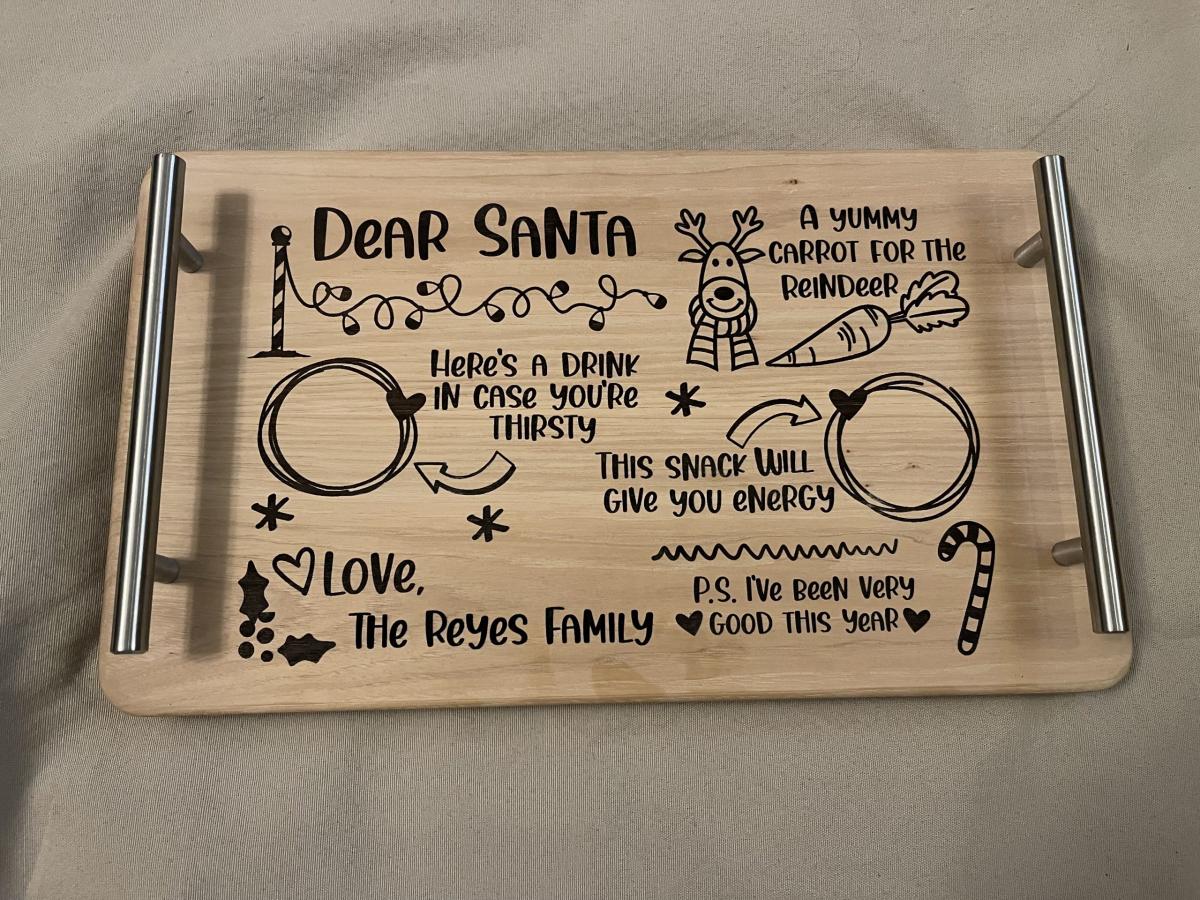 Dear Santa
A yummy
carrot for the
reindeer
Here's a drink
in case you're
thirsty
This snack will
give you energy
Love,
The Reyes Family
P.S. I've been very
good this year